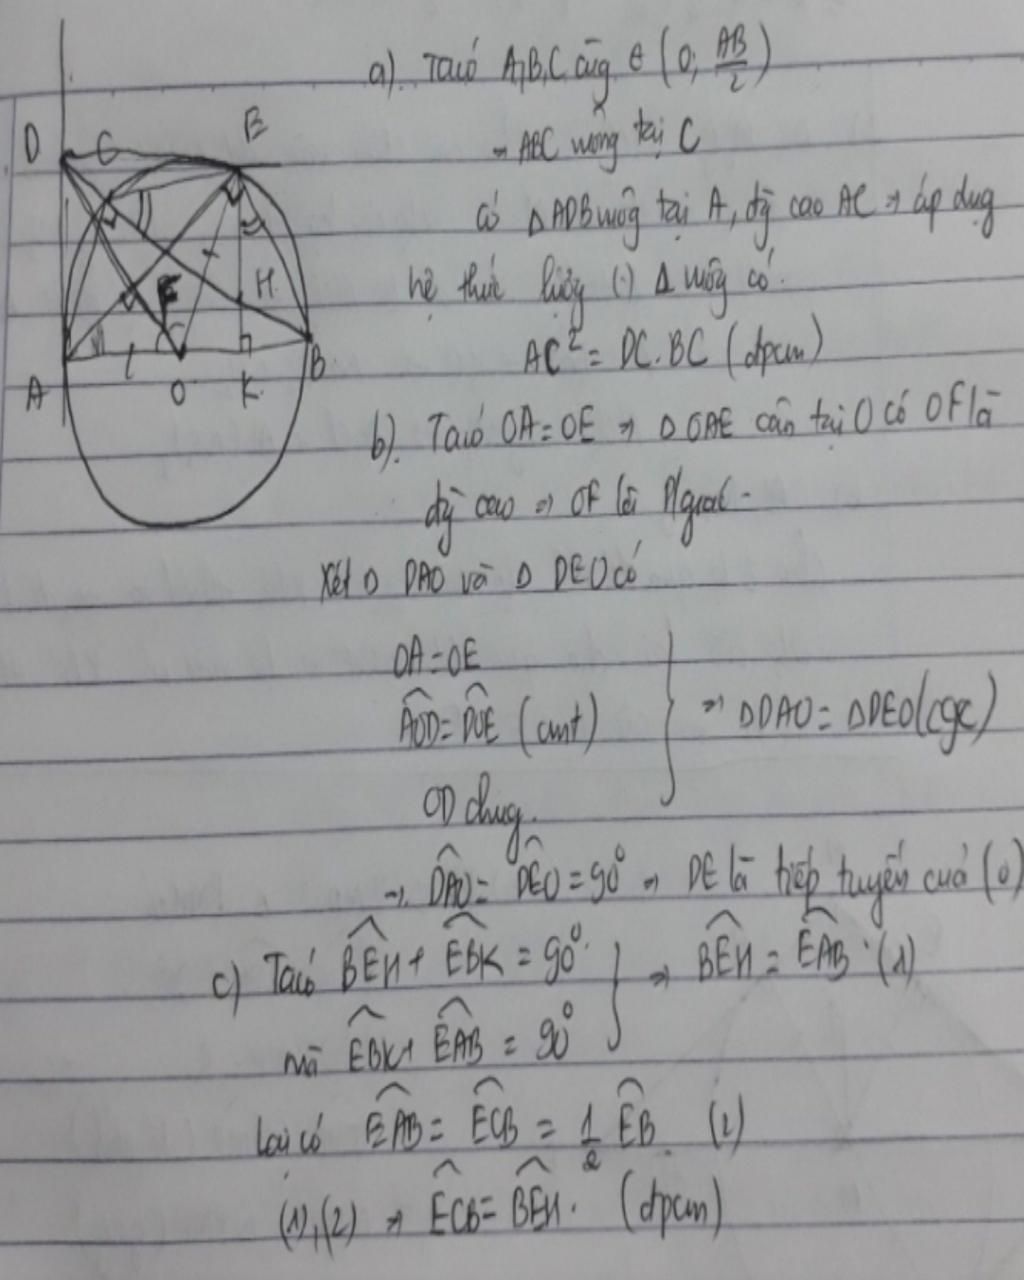 a). Ta có A,B,C cùg ∈ (O; AB/2)
→ ABC vuông tại C
có ΔADB vuôg tại A, đg cao AC → áp dụg
hệ thức lượg (·) Δ vuôg có:
AC² = DC.BC (đpcm)
b). Ta có OA=OE → Δ OAE cân tại O có OF là
đg cao → OF là P/giác
Xét Δ DAO và Δ DEO có
OA=OE
AOD = DOE (cmt)
OD chug.
} → ΔDAO = ΔDEO (cgc)
→ DAO = DEO = 90° → DE là tiếp tuyến cuả (O)
c) Ta có BEH + EBK = 90°
mà EBK + EAB = 90°
} → BEH = EAB (1)
Lại có EAB = ECB = 1/2 EB (2)
(1),(2) → ECB = BEH. (đpcm)
D
C
E
F
H
A
O
K
B